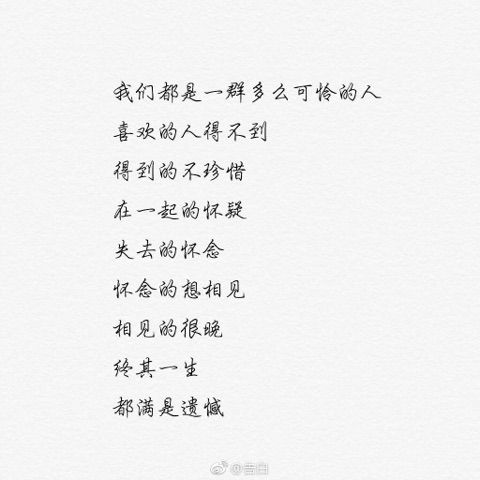 我们都是一群多么可怜的人
喜欢的人得不到
得到的不珍惜
在一起的怀疑
失去的怀念
怀念的想相见
相见的很晚
终其一生
都满是遗憾
@告白